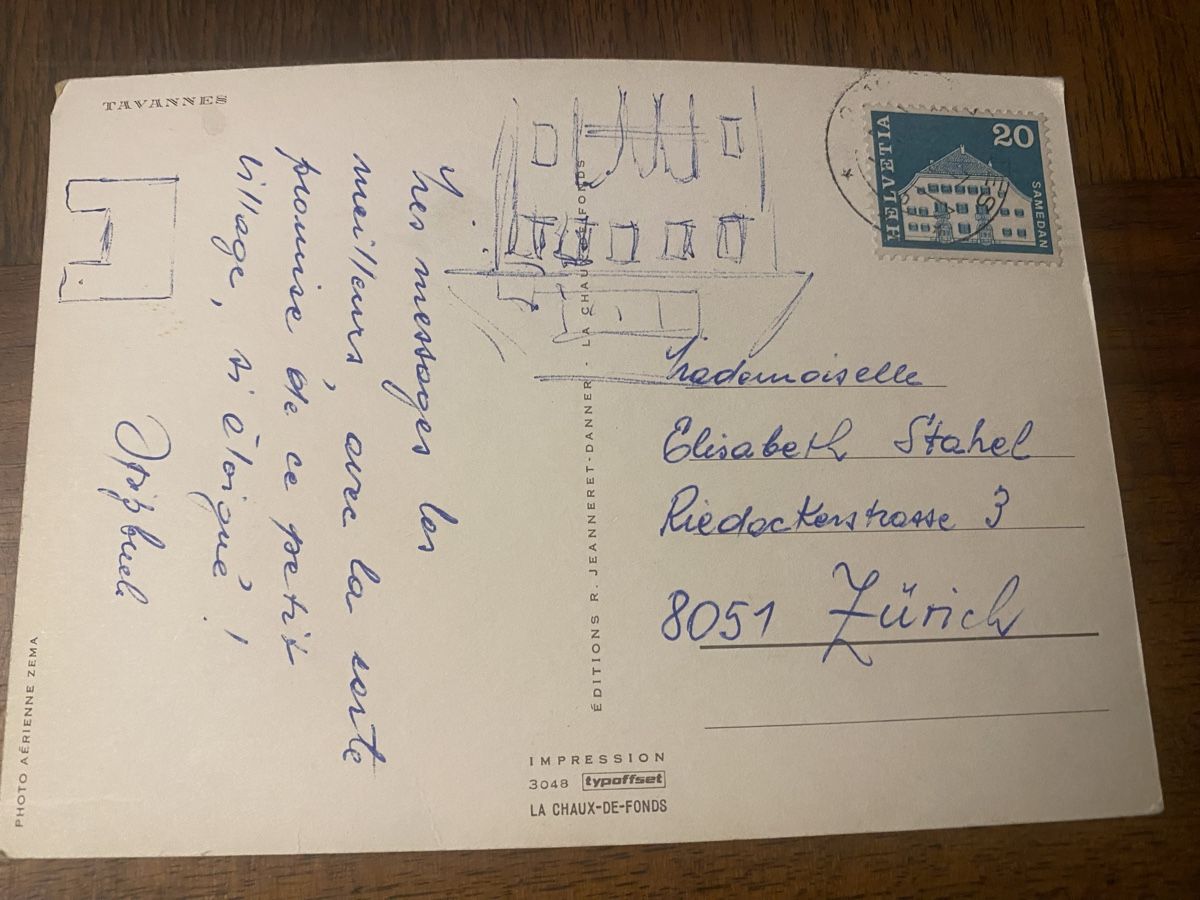 TAVANNES
Mes messages les
meilleurs, avec la carte
promise de ce petit
village, si éloigué!
HELVETIA
20
SAMEDAN
Mademoiselle
Elisabeth Stahel
Riedackerstrasse 3
8051 Zürich
ÉDITIONS R. JEANNERET-DANNER - LA CHAUX-DE-FONDS
IMPRESSION
3048 typoffset
LA CHAUX-DE-FONDS
PHOTO AÉRIENNE ZEMA